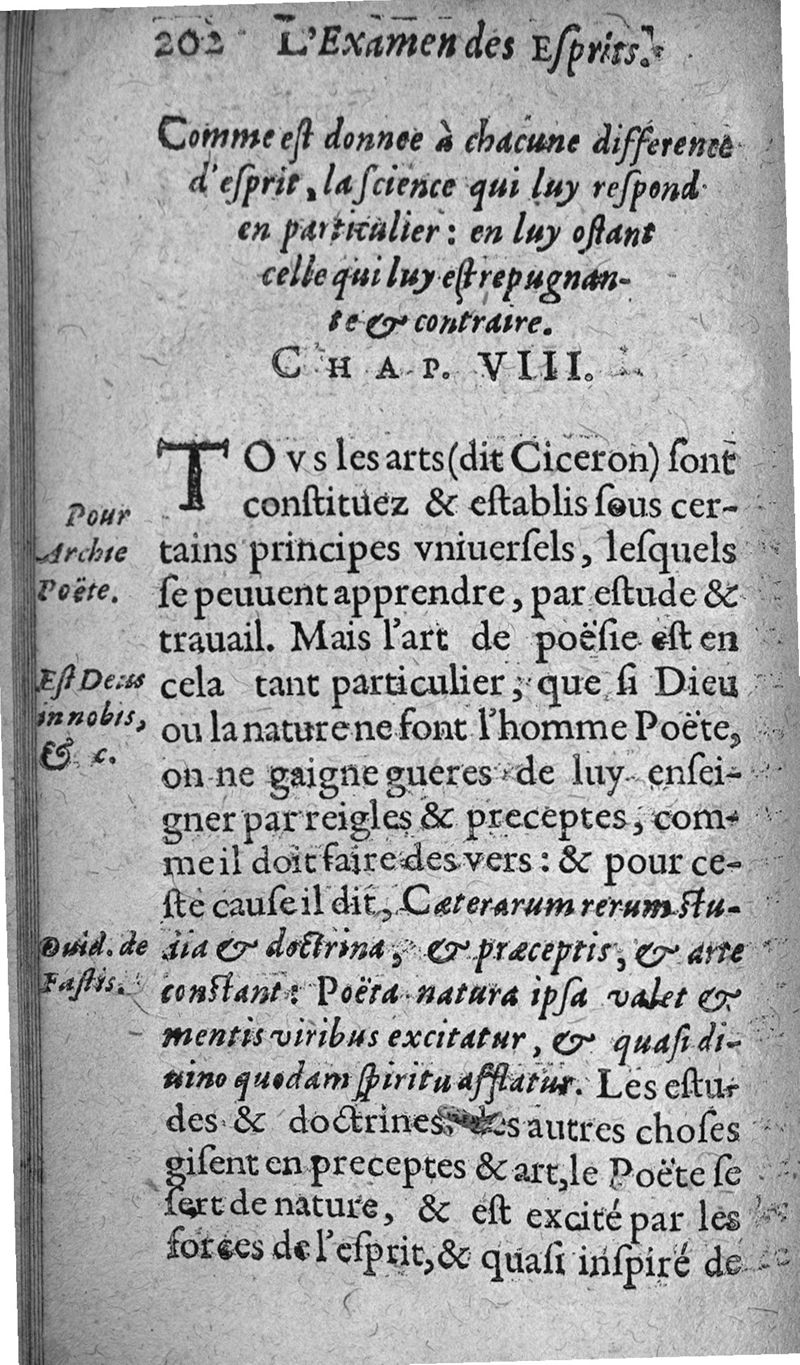 202 L'Examen des Eſprits.
Comme eſt donnee à chacune difference
d'eſprit, la ſcience qui luy reſpond
en particulier : en luy oſtant
celle qui luy eſt repugnan-
te & contraire.
CHAP. VIII.
TOvs les arts (dit Ciceron) ſont
conſtituez & eſtablis ſous cer-
tains principes vniuerſels, leſquels
ſe peuuent apprendre, par eſtude &
trauail. Mais l'art de poëſie eſt en
cela tant particulier, que ſi Dieu
ou la nature ne font l'homme Poëte,
on ne gaigne gueres de luy enſei-
gner par reigles & preceptes, com-
me il doit faire des vers : & pour ce-
ſte cauſe il dit, Cæterarum rerum ſtu-
dia & doctrina, & præceptis, & arte
conſtant : Poëta natura ipſa valet &
mentis viribus excitatur, & quaſi di-
uino quodam ſpiritu afflatur. Les eſtu-
des & doctrines des autres choſes
giſent en preceptes & art, le Poëte ſe
ſert de nature, & eſt excité par les
forces de l'eſprit, & quaſi inſpiré de
Pour
Archie
Poëte.
Eſt Deus
in nobis,
& c.
Ouid. de
Faſtis.